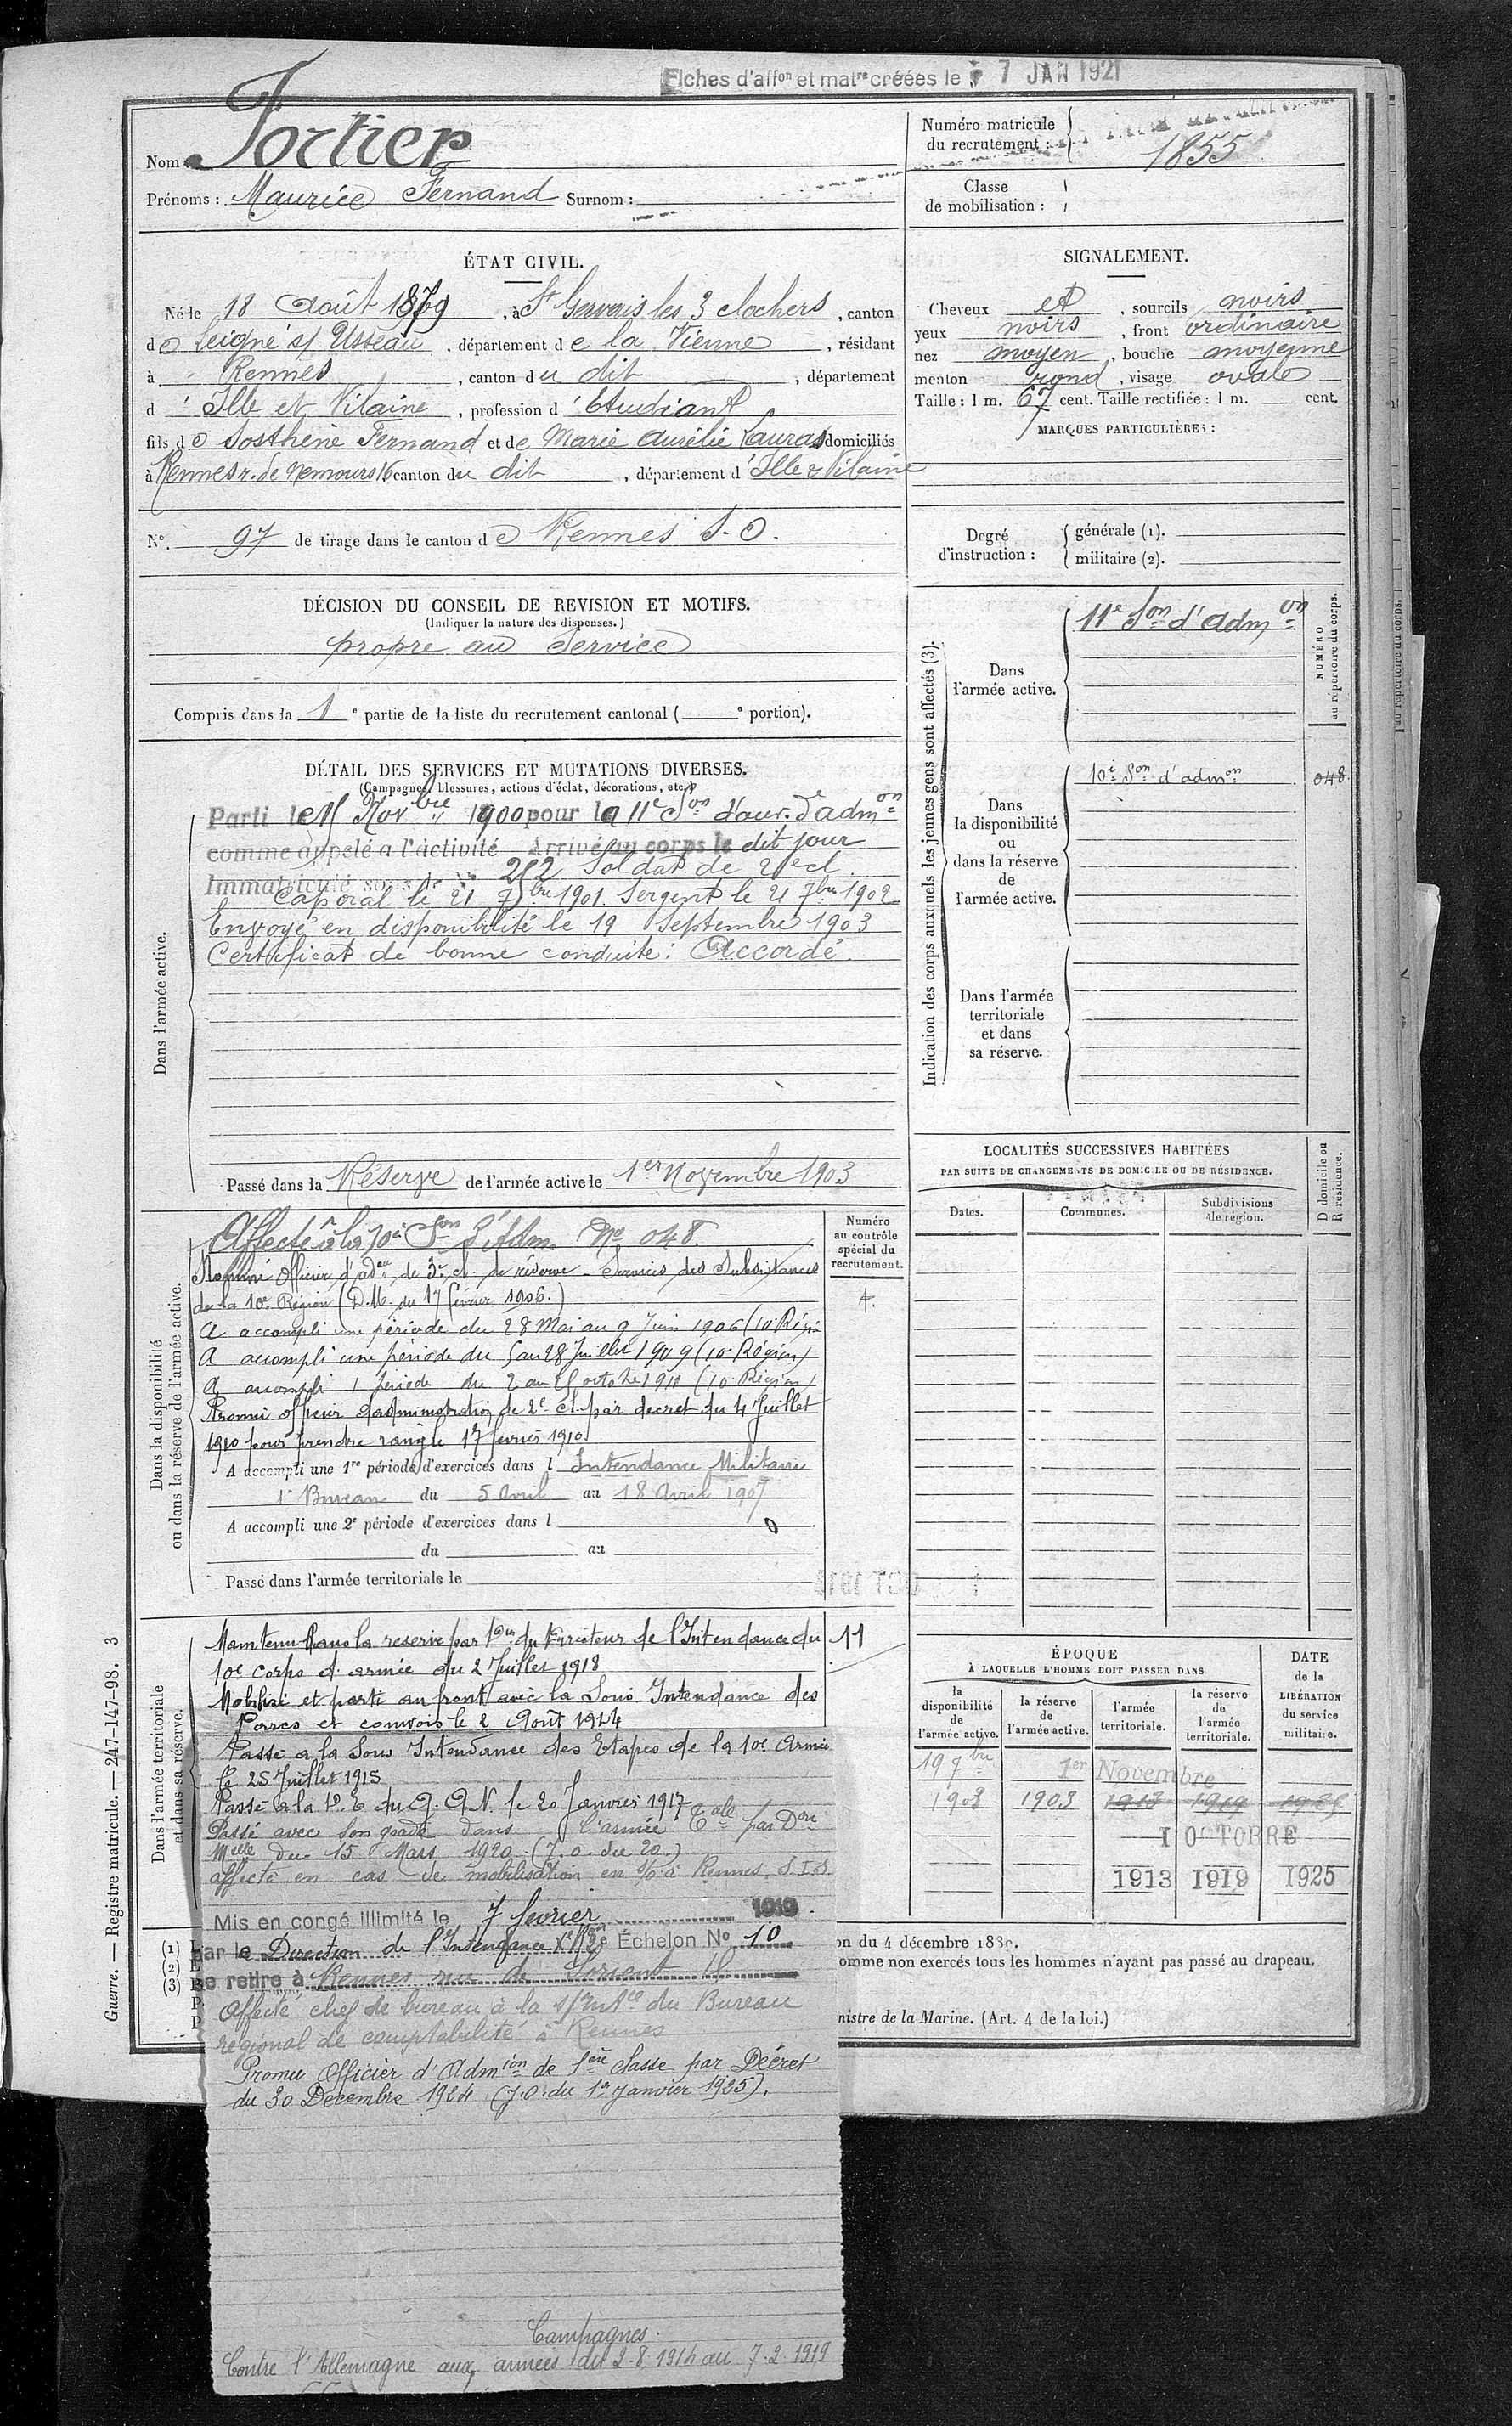 Fiches d'aff^on et mat^re créées le 7 JAN 1921
Nom Fortier
Prénoms : Maurice Fernand Surnom :
Numéro matricule du recrutement : 1855
Classe de mobilisation :
ÉTAT CIVIL.
Né le 18 Août 1879, à S^t Gervais les 3 clochers, canton
de Leigné s/ Usseau, département de la Vienne, résidant
à Rennes, canton du dit, département
d'Ille et Vilaine, profession d'Etudiant
fils de Sosthène Fernand et de Marie Aurélie Lauras domiciliés
à Rennes r. de Nemours 16 canton du dit, département d'Ille & Vilaine
N° 97 de tirage dans le canton de Rennes S.O.
SIGNALEMENT.
Cheveux et, sourcils noirs
yeux noirs, front ordinaire
nez moyen, bouche moyenne
menton rond, visage ovale
Taille : 1 m. 67 cent. Taille rectifiée : 1 m. cent.
MARQUES PARTICULIÈRES :
Degré d'instruction : générale (1).
militaire (2).
DÉCISION DU CONSEIL DE REVISION ET MOTIFS.
(Indiquer la nature des dispenses.)
propre au service
Compris dans la 1^e partie de la liste du recrutement cantonal ( ^e portion).
DÉTAIL DES SERVICES ET MUTATIONS DIVERSES.
(Campagnes, blessures, actions d'éclat, décorations, etc.)
Dans l'armée active.
Parti le Nov^bre 1900 pour la 11^e S^on d'ouv. d'adm^on
comme appelé à l'activité Arrivé au corps le dit jour
Immatriculé sous le N° 252 Soldat de 2^e cl.
Caporal le 21 7^bre 1901. Sergent le 21 7^bre 1902
Envoyé en disponibilité le 19 Septembre 1903
Certificat de bonne conduite : Accordé.
Passé dans la Réserve de l'armée active le 1^er Novembre 1903
Indication des corps auxquels les jeunes gens sont affectés (3).
NUMÉRO au répertoire du corps.
Dans l'armée active.
11^e S^on d'adm^on
Dans la disponibilité ou dans la réserve de l'armée active.
10^e S^on d'adm^on 048
Dans l'armée territoriale et dans sa réserve.
LOCALITÉS SUCCESSIVES HABITÉES
PAR SUITE DE CHANGEMENTS DE DOMICILE OU DE RÉSIDENCE.
Dates. Communes. Subdivisions de région. D domicile ou R résidence.
Dans la disponibilité ou dans la réserve de l'armée active.
Numéro au contrôle spécial du recrutement.
Affecté à la 10^e S^on d'Adm. N° 048
Nommé Officier d'ad^on de 3^e cl. de réserve - Services des Subsistances
de la 10^e Région (D.M. du 17 février 1906.)
4.
A accompli une période du 28 Mai au 9 Juin 1906 (10^e Région
A accompli une période du 5 au 28 Juillet 1909 (10^e Région)
A accompli 1 période du 2 au octobre 1911 (10^e Région)
Promu officier d'administration de 2^e cl. par decret du 4 Juillet
1910 pour prendre rang le 17 fevrier 1910
A accompli une 1^re période d'exercices dans l Intendance Militaire
1^er Bureau du 5 Avril au 18 Avril 1907
A accompli une 2^e période d'exercices dans l
du au
Passé dans l'armée territoriale le
Dans l'armée territoriale et dans sa réserve.
Maintenu dans la reserve par D^on du Directeur de l'Intendance du 11
10^e Corps d'armée du 2 Juillet 1918
Mobilisé et parti au front avec la Sous Intendance des
et convois le 2 Août 1914
Passé a la Sous Intendance des Etapes de la 10^e Armée
le 25 Juillet 1915
Passé à la D.E. du G.A.N. le 20 Janvier 1917
Passé avec son grade dans l'armée T^ale par D^on
M^elle du 15 Mars 1920 (J.O. du 20.)
affecté en cas de mobilisation en à Rennes. S.I.S.
Mis en congé illimité le 7 février 1919
par la Direction de l'Intendance Échelon N° 10
se retire à Rennes rue de Lorient
Affecté chef de bureau à la s/Int^ce du Bureau
régional de comptabilité à Rennes
Promu Officier d'Adm^ion de 1^ère classe par Décret
du 30 Décembre 1924 (J.O. du 1^er Janvier 1925).
Campagnes.
Contre l'Allemagne aux armées du 2.8.1914 au 7.2.1919
ÉPOQUE
À LAQUELLE L'HOMME DOIT PASSER DANS
la disponibilité de l'armée active. la réserve de l'armée active. l'armée territoriale. la réserve de l'armée territoriale.
DATE de la LIBÉRATION du service militaire.
19 7^bre 1^er Novembre
1903 1903 1913 1919 1925
1 OCTOBRE
1913 1919 1925
(1)
(2)
(3)
on du 4 décembre 1889.
omme non exercés tous les hommes n'ayant pas passé au drapeau.
nistre de la Marine. (Art. 4 de la loi.)
Guerre. — Registre matricule. — 247-147-98. 3